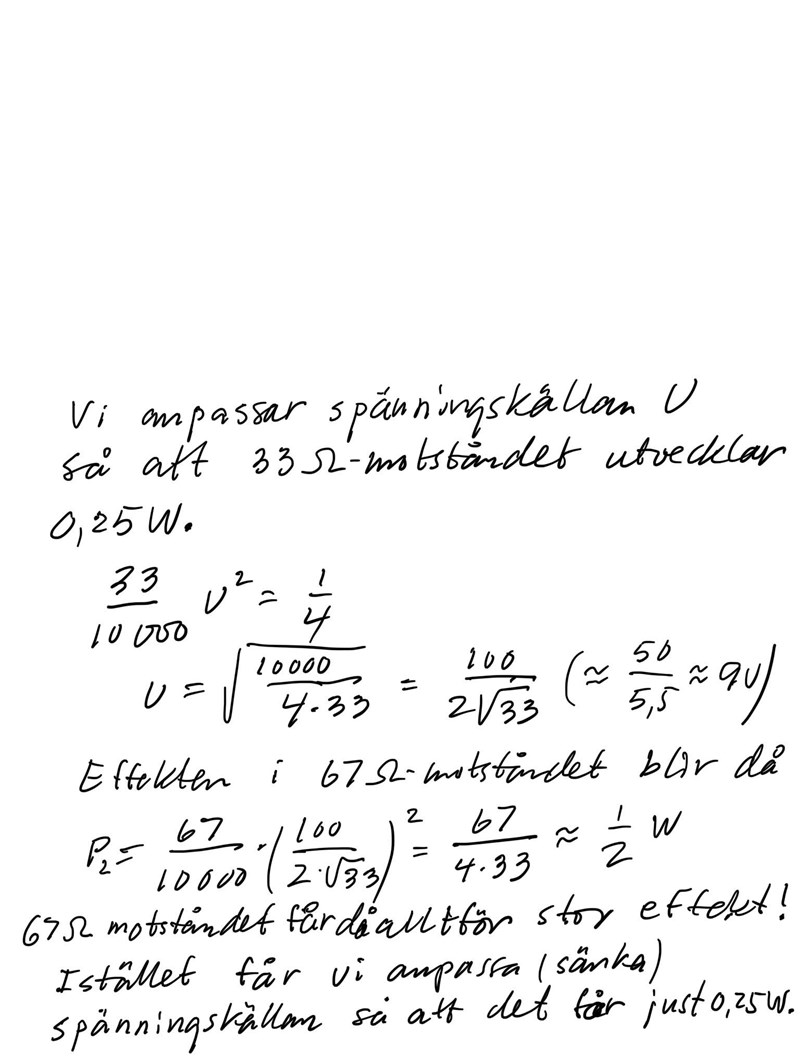 Vi anpassar spänningskällan U
så att 33Ω-motståndet utvecklar
0,25W.
33/10000 U² = 1/4
U = √(10000/(4·33)) = 100/(2√33) (≈ 50/5,5 ≈ 9V)
Effekten i 67Ω-motståndet blir då
P₂ = 67/10000 · (100/(2·√33))² = 67/(4·33) ≈ 1/2 W
67Ω motståndet får då alltför stor effekt!
Istället får vi anpassa (sänka)
spänningskällan så att det får just 0,25W.